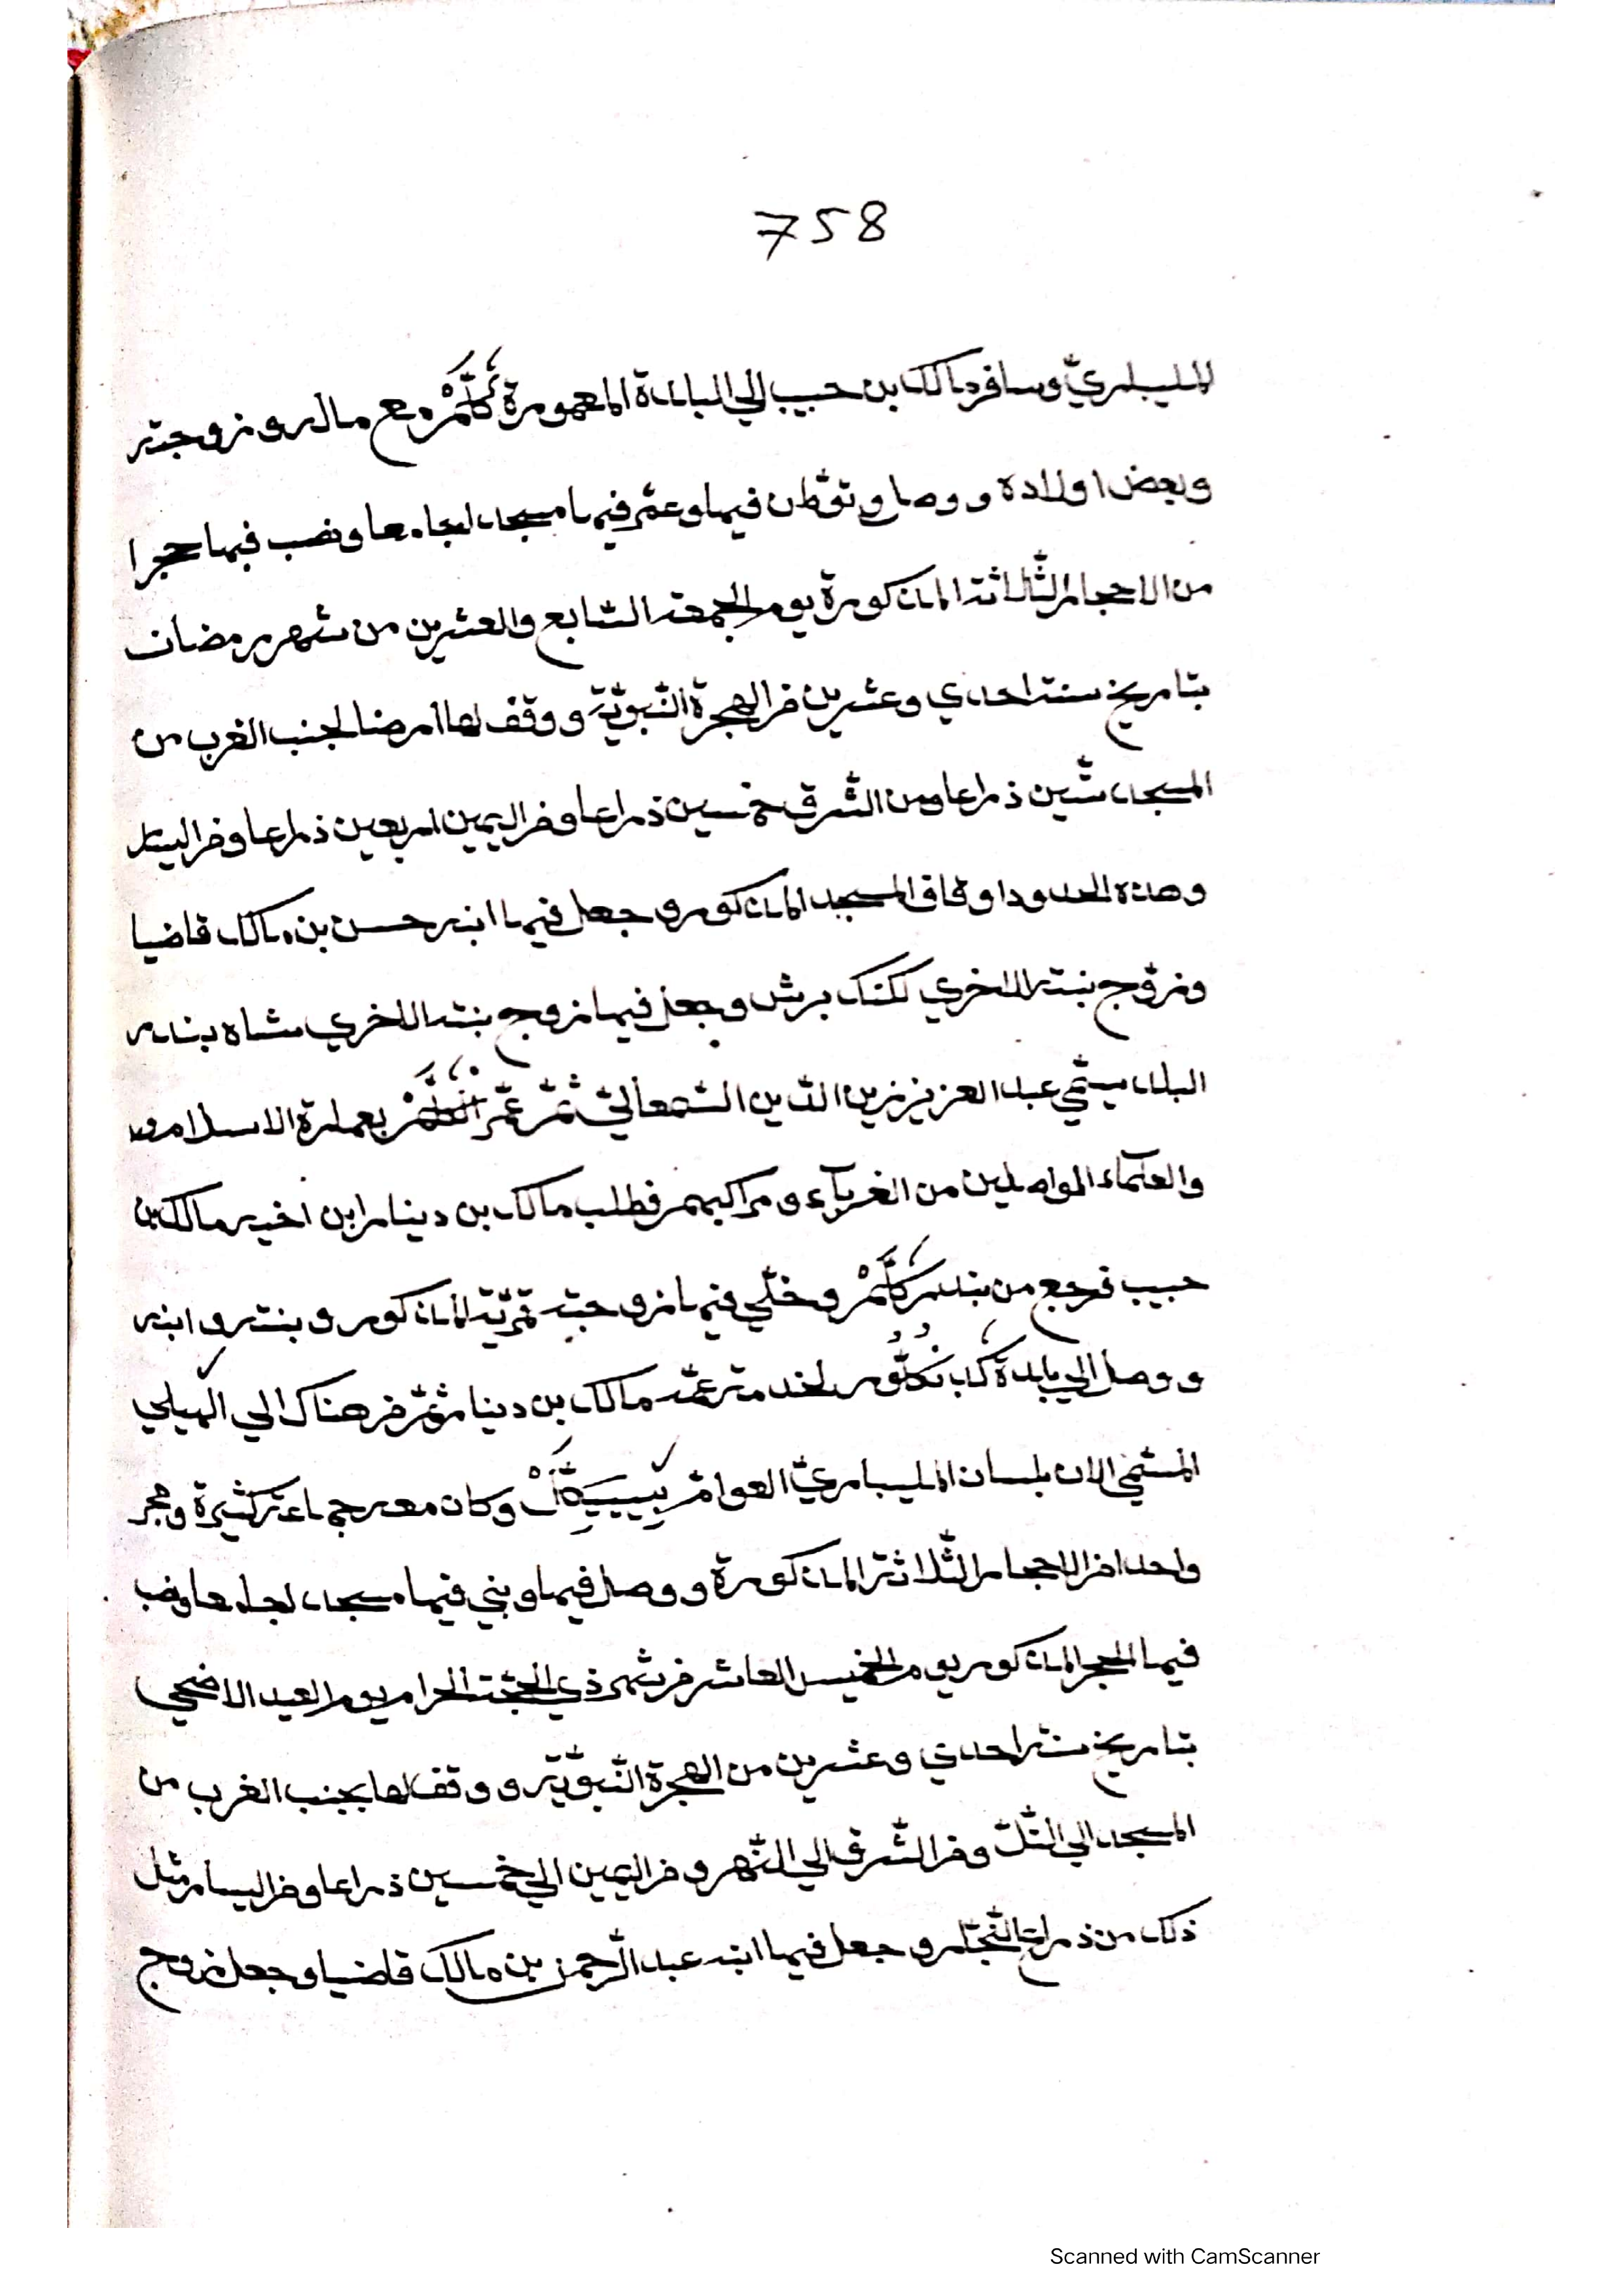 758
المليباري وسافر مالك بن حبيب الي البلدة المعمورة كُلَّمْ مع ماله وزوجته
وبعض اولاده ووصل وتوطن فيها وعمّر فيها مسجدا جامعا ونصب فيها حجرا
من الاحجار الثّلاثة المذكورة يوم الجمعة السّابع والعشرين من شهر رمضان
بتاريخ سنة احدي وعشرين من الهجرة النّبويّة ووقف لها ارضا لجنب الغرب من
المسجد ستّين ذراعا ومن الشّرق خمسين ذراعا ومن اليمين اربعين ذراعا ومن اليسار
وهذه الحدود اوقاف المسجد المذكور وجعل فيها ابنه حسن بن مالك قاضيا
وزوّج بنته الاخري لكنك برش وجعل فيها زوج بنته الاخري شاه بندر
البلد يسمّي عبد العزيز زين الدّين السّمعانيّ ثمّ عمّر بعمارة الاسلام
والعلمآء المواصلين من الغربآء ومراكبهم فطلب مالك بن دينار ابن اخيه مالك بن
حبيب فرجع من بندر كُلَّمْ وخلّي فيها زوجته قمريّة المذكور وبنته وابنه
ووصل الي بلدة لخدمة عمّه مالك بن دينار ثمّ من هناك الي الهيلي
المسمّي الان بلسان المليباريّ العوامّ وكان معه جماعة كثيرة وحجر
واحد من الاحجار الثّلاثة المذكورة ووصل فيها وبني فيها مسجدا جامعا ونصب
فيها الحجر المذكور يوم الخميس العاشر من شهر ذي الحجّة الحرام يوم العيد الاضحي
بتاريخ سنة احدي وعشرين من الهجرة النّبويّة ووقف لها بجنب الغرب من
المسجد الي التّلّ ومن الشّرق الي النّهر ومن اليمين الي خمسين ذراعا ومن اليسار مثل
ذلك من ذراع النّجّار وجعل فيها ابنه عبد الرّحمن بن مالك قاضيا وجعل زوج
Scanned with CamScanner